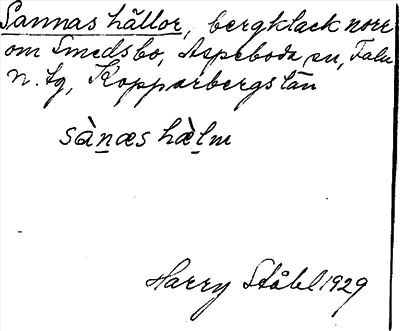 Sannas hällor, bergklack norr
om Smedsbo, Aspeboda sn, Falu
n. tg, Kopparbergs län
sàn̲æs hæ̀l̲m
Harry Ståhl 1929